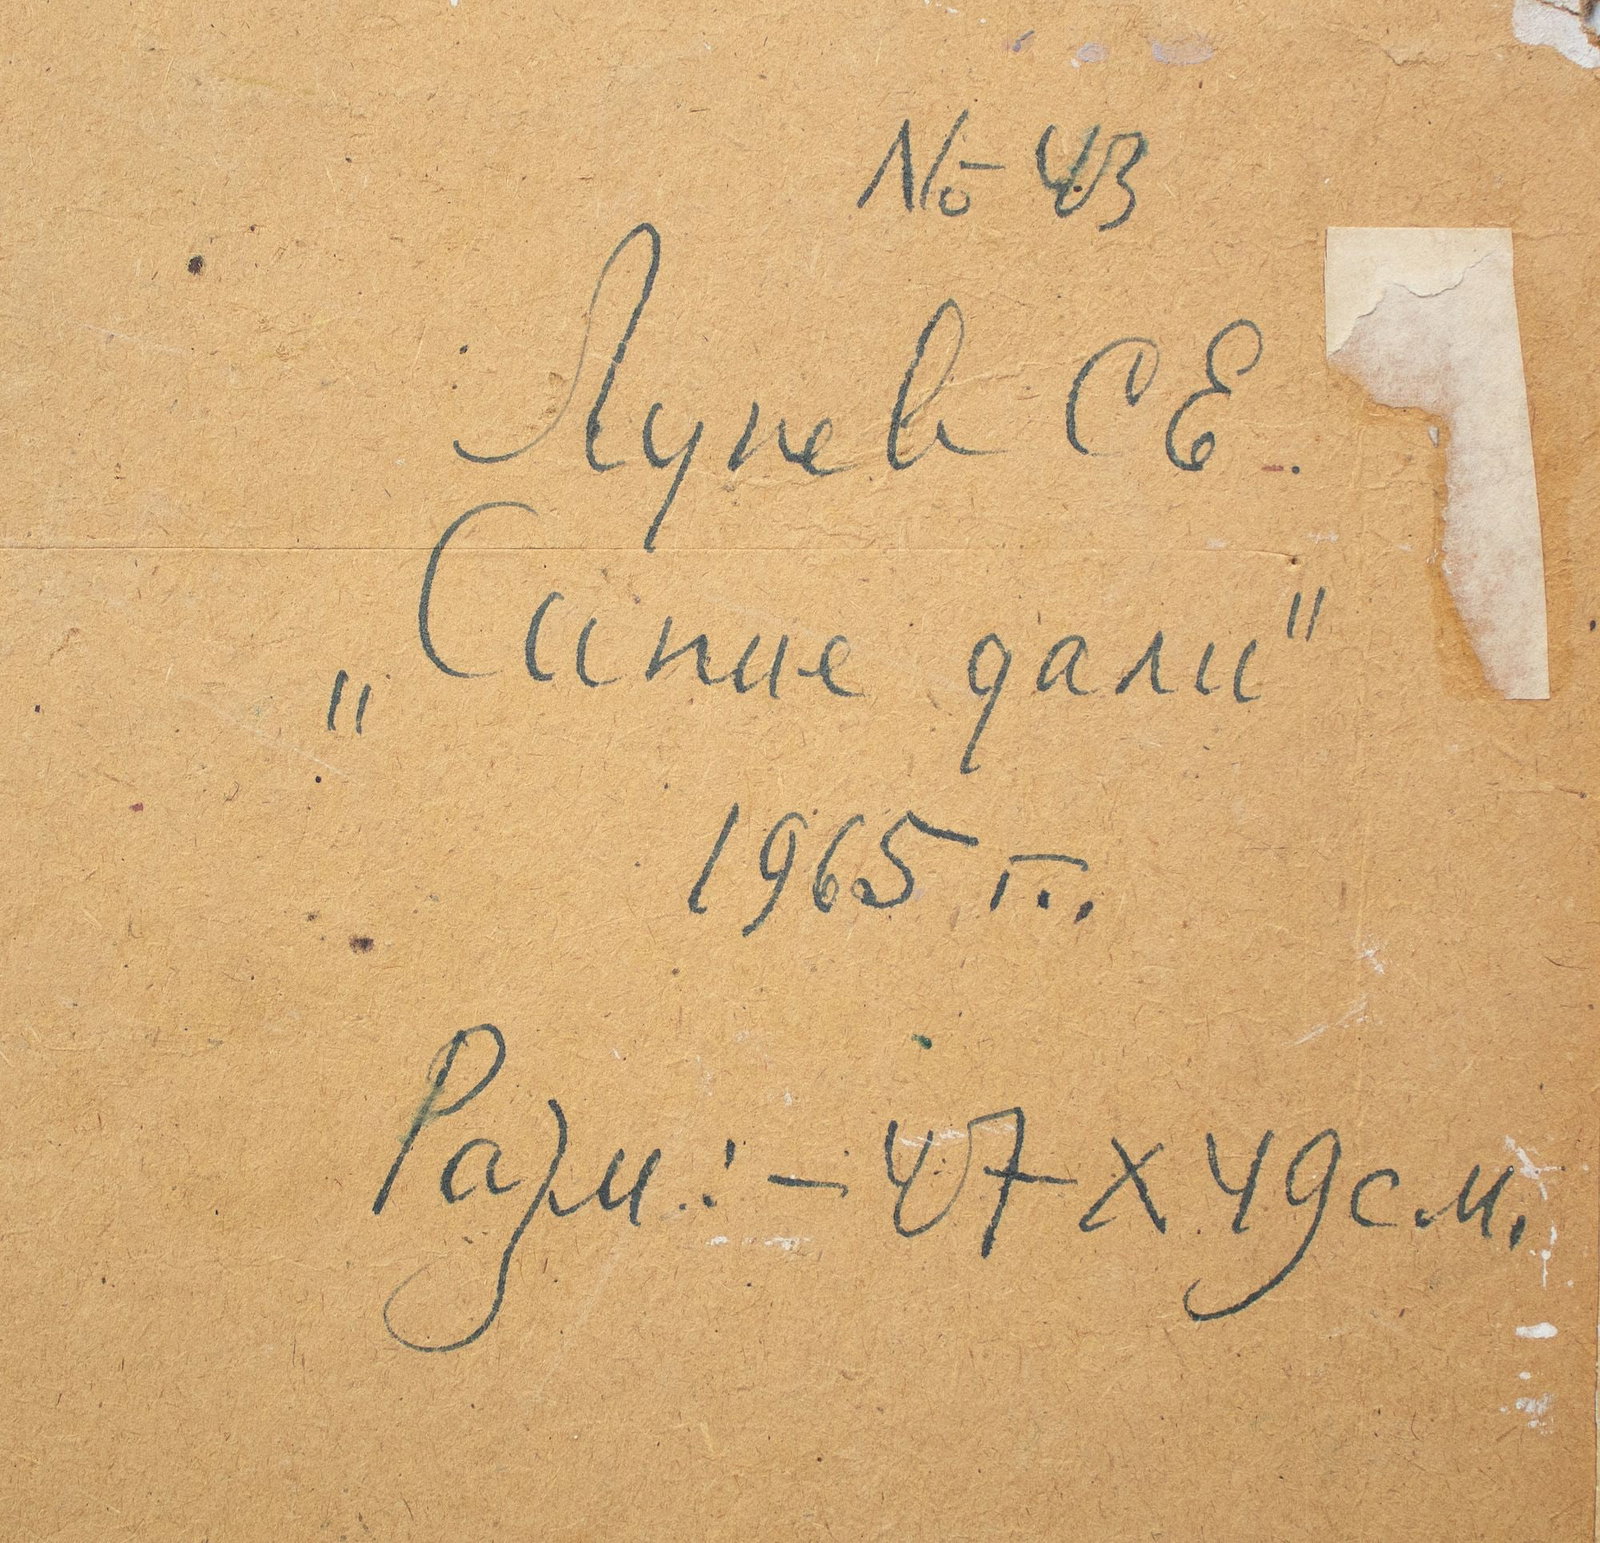 № 43
Лунев С Е.
„Синие дали"
1965 г.
Разм: - 47 х 49 см.